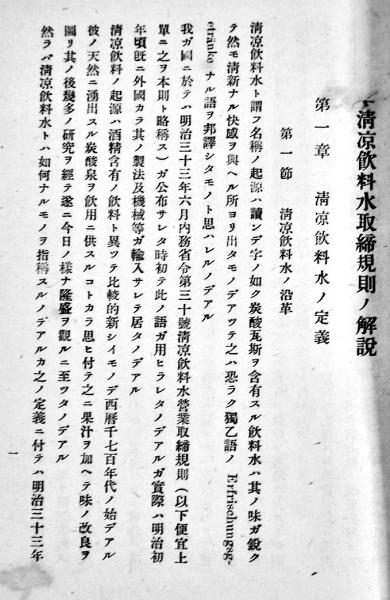 清凉飮料水取締規則ノ解說
第一章　淸凉飮料水ノ定義
第一節　淸凉飮料水ノ沿革
淸凉飮料水ト謂フ名稱ノ起源ハ讀ンデ字ノ如ク炭酸瓦斯ヲ含有スル飮料水ハ其ノ味ガ銳ク
テ然モ淸新ナル快感ヲ與ヘル所ヨリ出タモノデアツテ之ハ恐ラク獨乙語ノ Erfrischungsg-
etränke ナル語ヲ邦譯シタモノト思ハレルノデアル
我ガ國ニ於テハ明治三十三年六月內務省令第三十號淸凉飮料水營業取締規則(以下便宜上
單ニ之ヲ本則ト略稱ス)ガ公布サレタ時初テ此ノ語ガ用ヒラレタノデアルガ實際ハ明治初
年頃旣ニ外國カラ其ノ製法及機械等ガ輸入サレテ居タノデアル
淸凉飮料ノ起源ハ酒精含有ノ飮料ト異ツテ比較的新シイモノデ西曆千七百年代ノ始デアル
彼ノ天然ニ湧出スル炭酸泉ヲ飮用ニ供スルコトカラ思ヒ付テ之ニ果汁ヲ加ヘテ味ノ改良ヲ
圖リ其ノ後幾多ノ硏究ヲ經テ遂ニ今日ノ樣ナ隆盛ヲ觀ルニ至ツタノデアル
然ラバ淸凉飮料水トハ如何ナルモノヲ指稱スルノデアルカ之ノ定義ニ付テハ明治三十三年
一